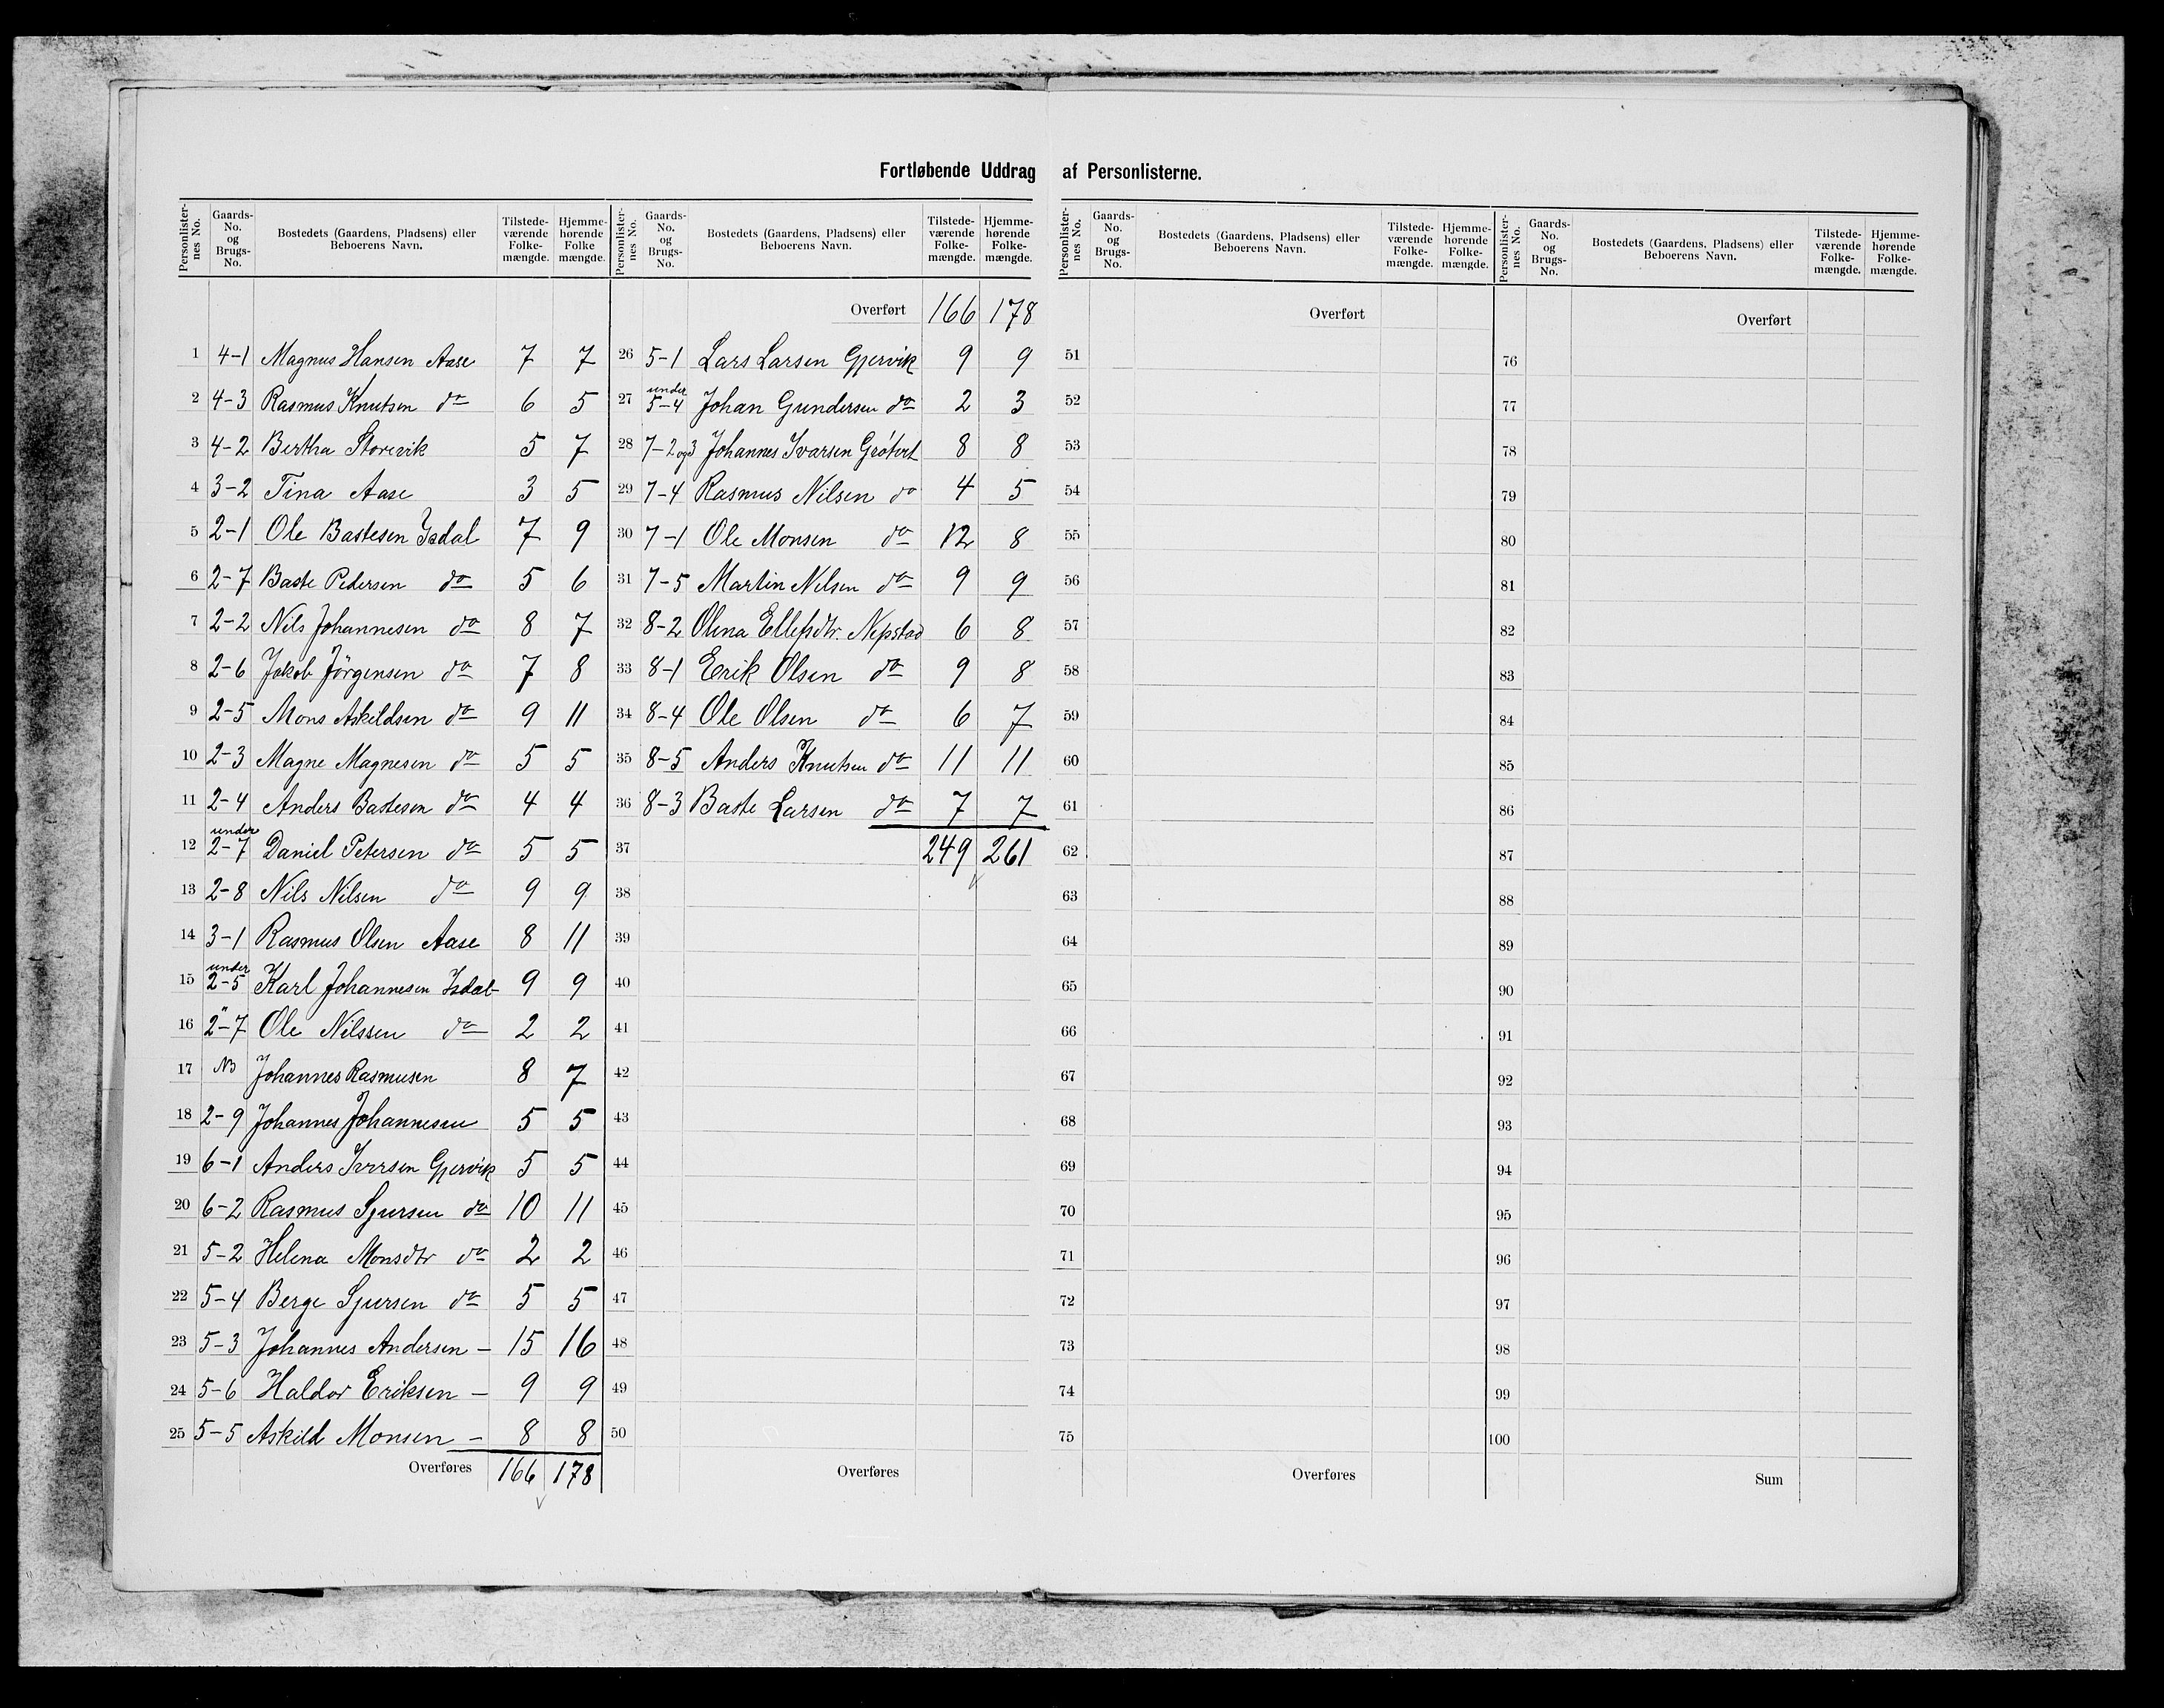 Fortløbende Uddrag af Personlisterne.
Personlister-nes No. | Gaards-No. og Brugs-No. | Bostedets (Gaardens, Pladsens) eller Beboerens Navn. | Tilstede-værende Folke-mængde. | Hjemme-hørende Folke mængde.
1 4-1 Magnus Hansen Aase 7 7
2 4-3 Rasmus Knutsen do 6 5
3 4-2 Bertha Storevik 5 7
4 3-2 Tina Aase 3 5
5 2-1 Ole Bastesen Isdal 7 9
6 2-7 Baste Pedersen do 5 6
7 2-2 Nils Johannesen do 8 7
8 2-6 Jakob Jörgensen do 7 8
9 2-5 Mons Askildsen do 9 11
10 2-3 Magne Magnesen do 5 5
11 2-4 Anders Bastesen do 4 4
12 under 2-7 Daniel Petersen do 5 5
13 2-8 Nils Nilsen do 9 9
14 3-1 Rasmus Olsen Aase 8 11
15 under 2-5 Karl Johannesen Isdal 9 9
16 " 2-7 Ole Nilssen do 2 2
17 NB Johannes Rasmusen 8 7
18 2-9 Johannes Johannesen 5 5
19 6-1 Anders Ivrsen Gjervik 5 5
20 6-2 Rasmus Sjursen do 10 11
21 5-2 Helena Monsdtr do 2 2
22 5-4 Berge Sjursen do 5 5
23 5-3 Johannes Andersen - 15 16
24 5-6 Haldor Eriksen - 9 9
25 5-5 Askild Monsen - 8 8
Overføres 166 178
Personlister-nes No. | Gaards-No. og Brugs-No. | Bostedets (Gaardens, Pladsens) eller Beboerens Navn. | Tilstede-værende Folke-mængde. | Hjemme-hørende Folke-mængde.
Overført 166 178
26 5-1 Lars Larsen Gjervik 9 9
27 under 5-4 Johan Gundersen do 2 3
28 7-2 og 3 Johannes Ivarsen 8 8
29 7-4 Rasmus Nilsen do 4 5
30 7-1 Ole Monsen do 12 8
31 7-5 Martin Nilsen do 9 9
32 8-2 Olena Ellefsdtr. Nepstad 6 8
33 8-1 Erik Olsen do 9 8
34 8-4 Ole Olsen do 6 7
35 8-5 Anders Knutsen do 11 11
36 8-3 Baste Larsen do 7 7
37 249 261
38
39
40
41
42
43
44
45
46
47
48
49
50
Overføres
Personlister-nes No. | Gaards-No. og Brugs-No. | Bostedets (Gaardens, Pladsens) eller Beboerens Navn. | Tilstede-værende Folke-mængde. | Hjemme-hørende Folke-mængde.
Overført
51
52
53
54
55
56
57
58
59
60
61
62
63
64
65
66
67
68
69
70
71
72
73
74
75
Overføres
Personlister-nes No. | Gaards-No. og Brugs-No. | Bostedets (Gaardens, Pladsens) eller Beboerens Navn. | Tilstede-værende Folke-mængde. | Hjemme-hørende Folke-mængde.
Overført
76
77
78
79
80
81
82
83
84
85
86
87
88
89
90
91
92
93
94
95
96
97
98
99
100
Sum